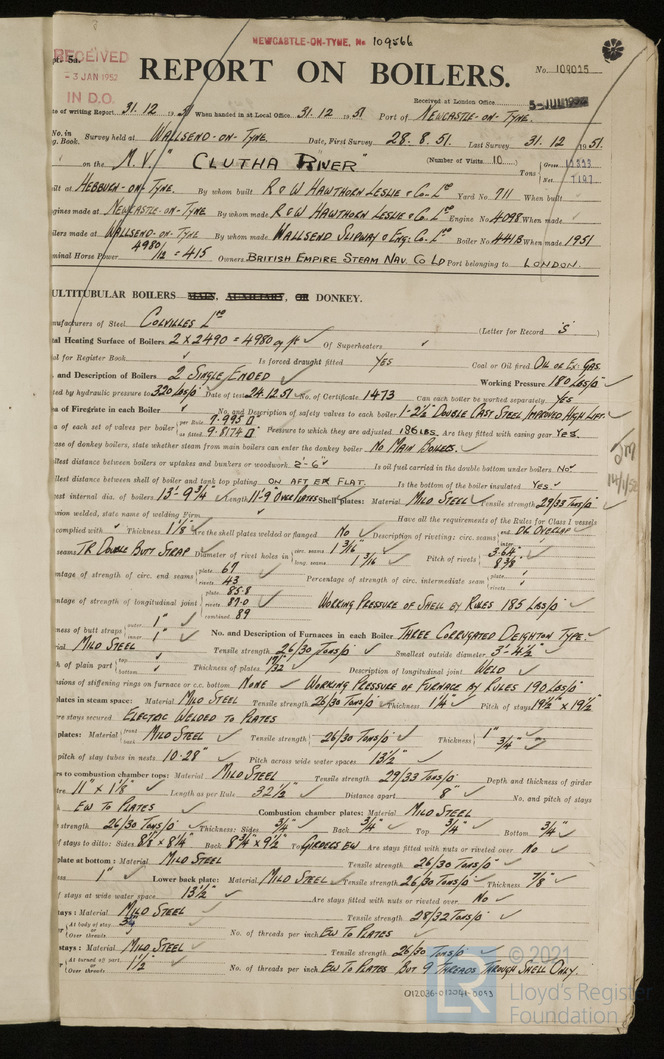 NEWCASTLE-ON-TYNE, No 109566
RECEIVED
-3 JAN 1952
IN D.O.
pt. 5a.
REPORT ON BOILERS.
No. 109015
Received at London Office
te of writing Report 31.12 19 51 When handed in at Local Office 31.12 19 51 Port of NEWCASTLE-ON-TYNE.
No. in
g. Book. Survey held at WALLSEND-ON-TYNE. Date, First Survey 28.8.51. Last Survey 31.12 1951.
on the M.V. "CLUTHA RIVER" (Number of Visits 10) Tons Gross
Net
ilt at HEBBURN-ON-TYNE By whom built R & W HAWTHORN LESLIE & Co. Ltd Yard No. 711 When built
gines made at NEWCASTLE-ON-TYNE By whom made R & W HAWTHORN LESLIE & Co. Ltd Engine No. 4098 When made
ilers made at WALLSEND-ON-TYNE By whom made WALLSEND SLIPWAY & ENG: Co. Ltd Boiler No. 4413 When made 1951
minal Horse Power 4980/12 = 415 Owners BRITISH EMPIRE STEAM NAV. Co LD Port belonging to LONDON.
ULTITUBULAR BOILERS MAIN, AUXILIARY, OR DONKEY.
nufacturers of Steel COLVILLES Ltd (Letter for Record S)
tal Heating Surface of Boilers 2 x 2490 = 4980 sq ft Of Superheaters
al for Register Book Is forced draught fitted YES Coal or Oil fired OIL OR EX: GAS.
and Description of Boilers 2 SINGLE ENDED Working Pressure 180 LBS/□
ted by hydraulic pressure to 320 LBS/□ Date of test 24.12.51 No. of Certificate 1473 Can each boiler be worked separately YES
ea of Firegrate in each Boiler No. and Description of safety valves to each boiler 1-2½" DOUBLE CAST STEEL IMPROVED HIGH LIFT
a of each set of valves per boiler per Rule 7.995 □"
as fitted 9.8174 □" Pressure to which they are adjusted 186 LBS. Are they fitted with easing gear YES.
ase of donkey boilers, state whether steam from main boilers can enter the donkey boiler NO MAIN BOILERS.
llest distance between boilers or uptakes and bunkers or woodwork 2'-6" Is oil fuel carried in the double bottom under boilers NO
llest distance between shell of boiler and tank top plating ON AFTER FLAT. Is the bottom of the boiler insulated YES
est internal dia. of boilers 13'-9¾" Length 11'-9" Shell plates: Material MILD STEEL Tensile strength 29/33 TONS/□
sion welded, state name of welding Firm Have all the requirements of the Rules for Class I vessels
complied with Thickness 1⅛" Are the shell plates welded or flanged NO Description of riveting: circ. seams end DR OVERLAP
inter.
seams TR DOUBLE BUTT STRAP Diameter of rivet holes in circ. seams 1 3/16"
long. seams 1 3/16" Pitch of rivets 3.64"
8⅜"
entage of strength of circ. end seams plate 67
rivets 43 Percentage of strength of circ. intermediate seam plate
rivets
ntage of strength of longitudinal joint plate 85.8
rivets 87.0
combined 89 WORKING PRESSURE OF SHELL BY RULES 185 LBS/□
ness of butt straps outer 1"
inner 1" No. and Description of Furnaces in each Boiler THREE CORRUGATED DEIGHTON TYPE.
ial MILD STEEL Tensile strength 26/30 TONS/□ Smallest outside diameter 3'-4½"
h of plain part top
bottom Thickness of plates 17/32 Description of longitudinal joint WELD
sions of stiffening rings on furnace or c.c. bottom NONE WORKING PRESSURE OF FURNACE BY RULES 190 LBS/□
plates in steam space: Material MILD STEEL Tensile strength 26/30 TONS/□ Thickness 1¼" Pitch of stays 19½" x 19½"
re stays secured ELECTRIC WELDED TO PLATES
plates: Material front
back MILD STEEL Tensile strength 26/30 TONS/□ Thickness 1"
¾"
pitch of stay tubes in nests 10.28" Pitch across wide water spaces 13½"
rs to combustion chamber tops: Material MILD STEEL Tensile strength 29/33 TONS/□ Depth and thickness of girder
tre 11" x 1⅛" Length as per Rule 32½" Distance apart 8" No. and pitch of stays
EW TO PLATES Combustion chamber plates: Material MILD STEEL
strength 26/30 TONS/□ Thickness: Sides ¾" Back ¾" Top ¾" Bottom ¾"
of stays to ditto: Sides 8⅛" x 8¼" Back 8¾" x 9½" To GIRDERS EW Are stays fitted with nuts or riveted over NO
plate at bottom: Material MILD STEEL Tensile strength 26/30 TONS/□
ess 1" Lower back plate: Material MILD STEEL Tensile strength 26/30 TONS/□ Thickness ⅞"
f stays at wide water space 13½" Are stays fitted with nuts or riveted over NO
tays: Material MILD STEEL Tensile strength 28/32 TONS/□
At body of stay
Over threads No. of threads per inch EW TO PLATES
stays: Material MILD STEEL Tensile strength 26/30 TONS/□
At turned off part 1½"
Over threads No. of threads per inch EW TO PLATES BUT 9 THREADS THROUGH SHELL ONLY.
012036-012041-0093
© 2021
Lloyd's Register
Foundation
LR